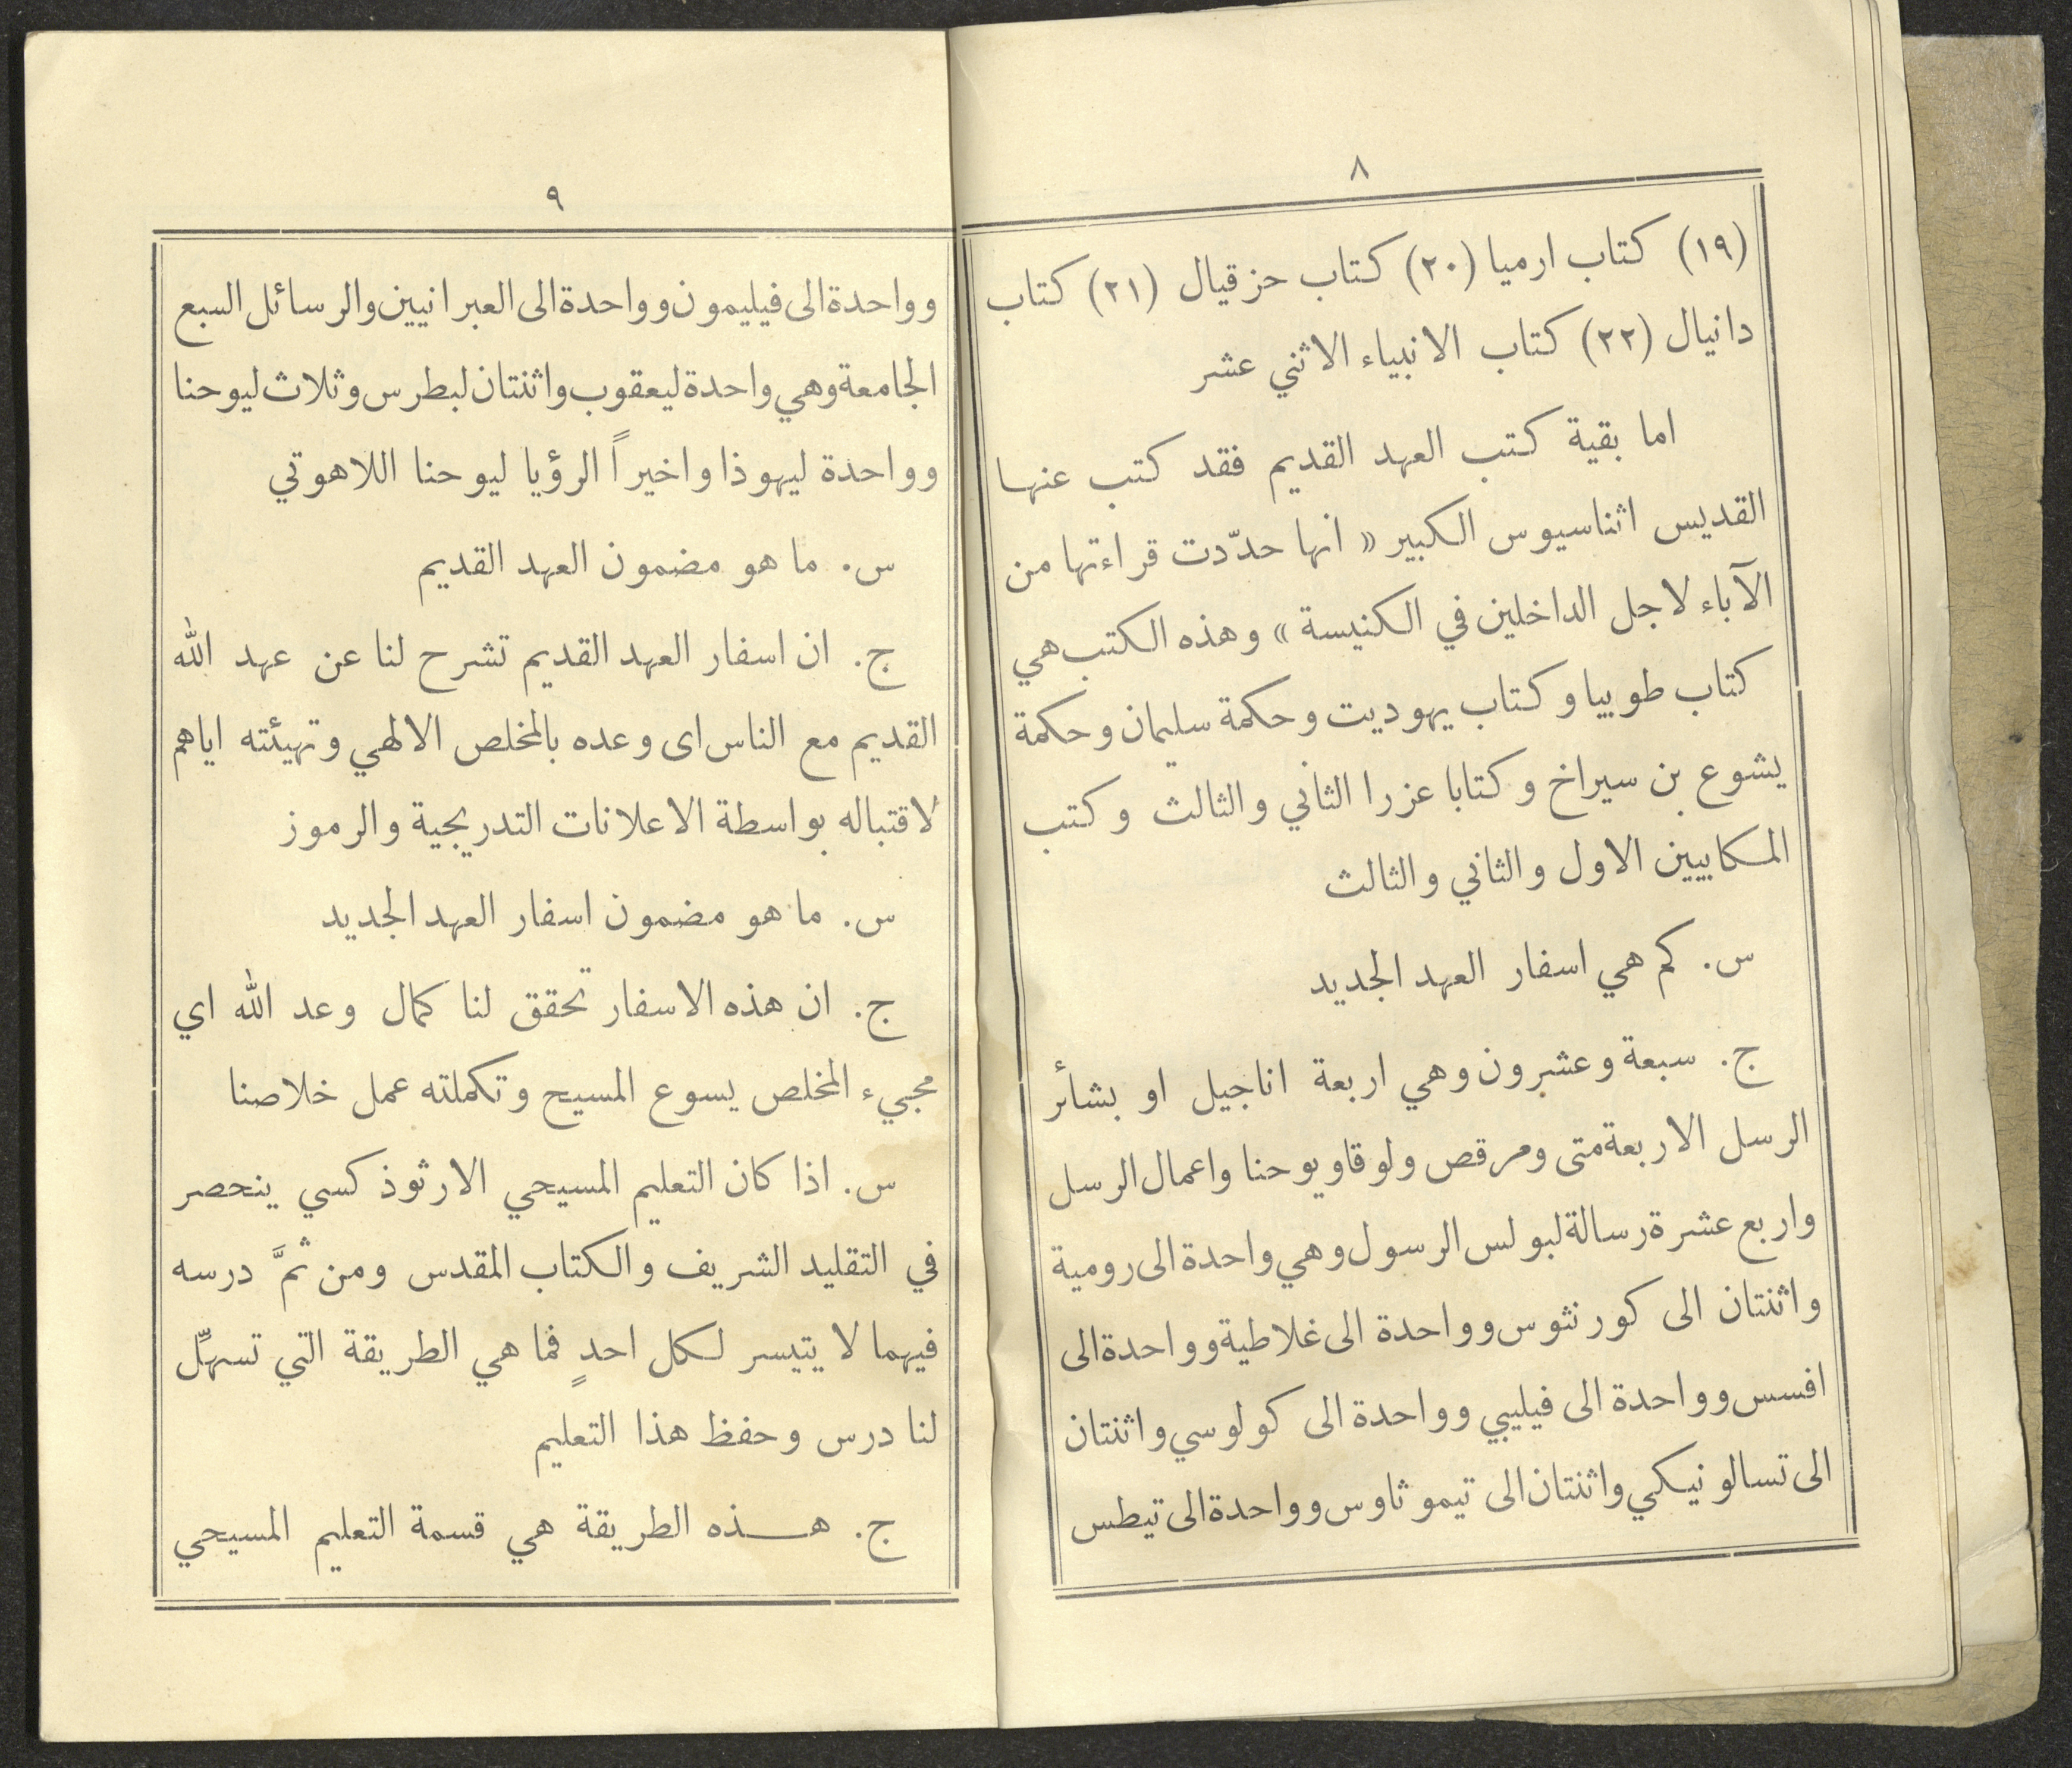 ٨
(١٩) كتاب ارميا (٢٠) كتاب حزقيال (٢١) كتاب
دانيال (٢٢) كتاب الانبياء الاثني عشر
اما بقية كتب العهد القديم فقد كتب عنها
القديس اثناسيوس الكبير « انها حدّدت قراءتها من
الآباء لاجل الداخلين في الكنيسة » وهذه الكتب هي
كتاب طوبيا وكتاب يهوديت وحكمة سليمان وحكمة
يشوع بن سيراخ وكتابا عزرا الثاني والثالث وكتب
المكابيين الاول والثاني والثالث
س. كم هي اسفار العهد الجديد
ج. سبعة وعشرون وهي اربعة اناجيل او بشائر
الرسل الاربعة متى ومرقص ولوقا ويوحنا واعمال الرسل
واربع عشرة رسالة لبولس الرسول وهي واحدة الى رومية
واثنتان الى كورنثوس وواحدة الى غلاطية وواحدة الى
افسس وواحدة الى فيليبي وواحدة الى كولوسي واثنتان
الى تسالونيكي واثنتان الى تيموثاوس وواحدة الى تيطس
٩
وواحدة الى فيليمون وواحدة الى العبرانيين والرسائل السبع
الجامعة وهي واحدة ليعقوب واثنتان لبطرس وثلاث ليوحنا
وواحدة ليهوذا واخيراً الرؤيا ليوحنا اللاهوتي
س. ما هو مضمون العهد القديم
ج. ان اسفار العهد القديم تشرح لنا عن عهد الله
القديم مع الناس اى وعده بالمخلص الالهي وتهيئته اياهم
لاقتباله بواسطة الاعلانات التدريجية والرموز
س. ما هو مضمون اسفار العهد الجديد
ج. ان هذه الاسفار تحقق لنا كمال وعد الله اي
مجيء المخلص يسوع المسيح وتكملته عمل خلاصنا
س. اذا كان التعليم المسيحي الارثوذكسي ينحصر
في التقليد الشريف والكتاب المقدس ومن ثمَّ درسه
فيهما لا يتيسر لكل احدٍ فما هي الطريقة التي تسهّل
لنا درس وحفظ هذا التعليم
ج. هـــذه الطريقة هي قسمة التعليم المسيحي